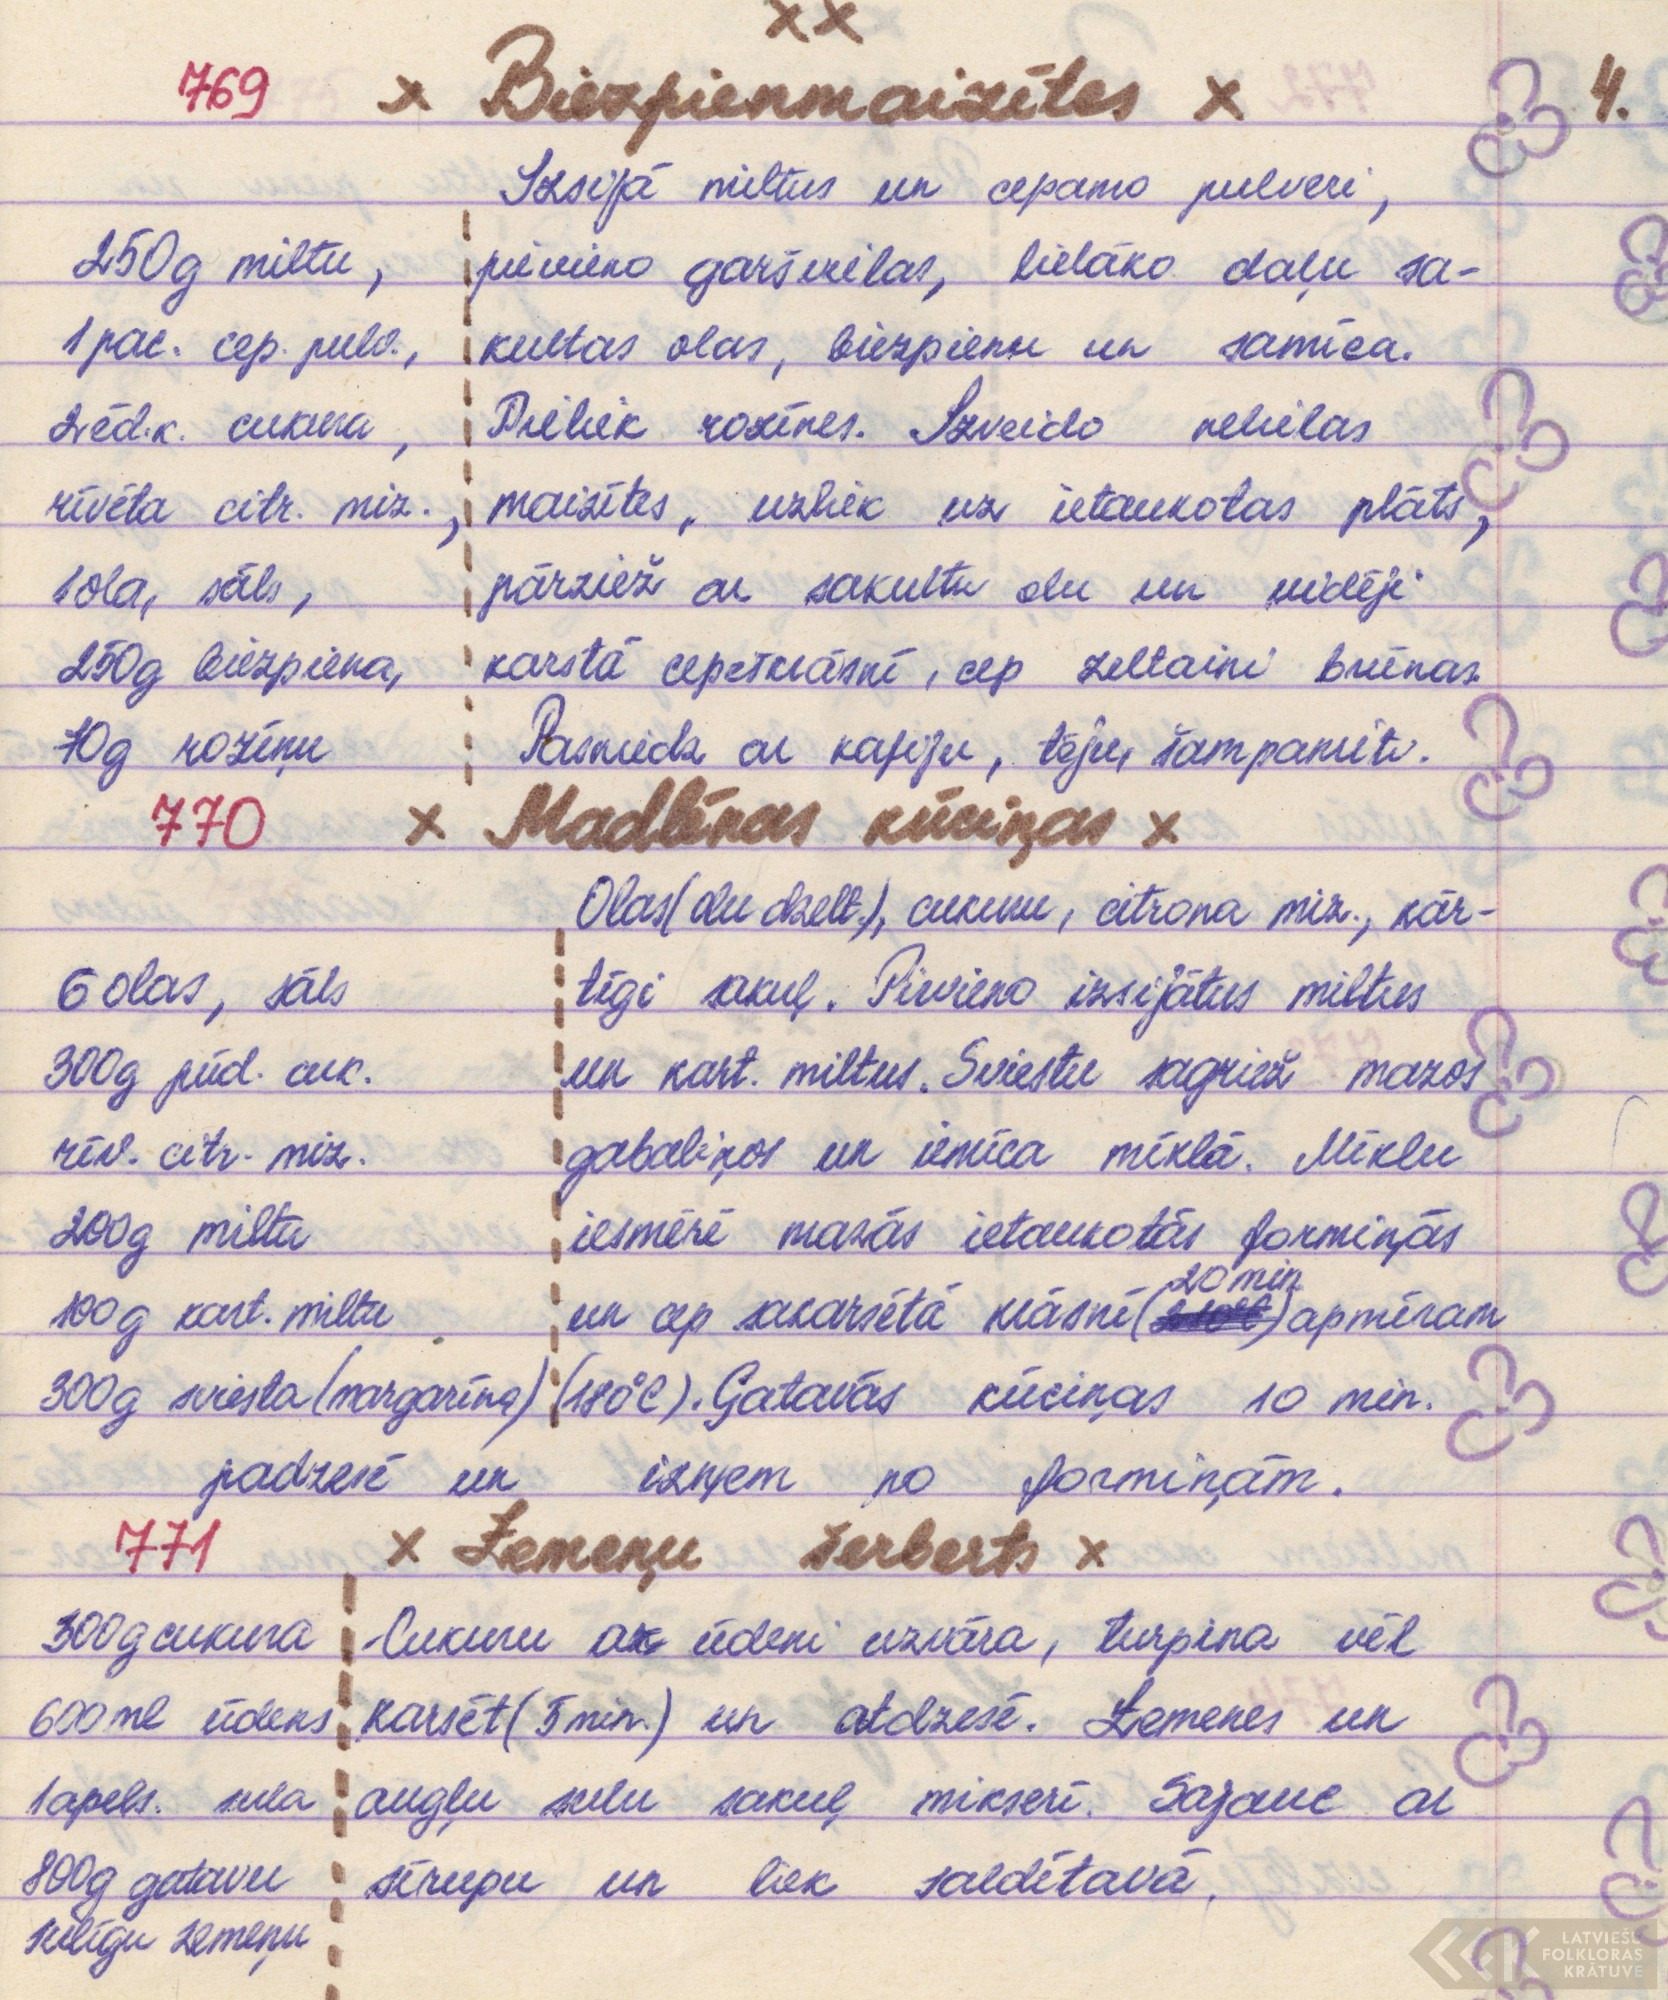 xx
769 x Biezpienmaizītes x 4.
Izsijā miltus un cepamo pulveri,
250g miltu, pievieno garšvielas, lielāko daļu sa-
1 pac. cep. pulv., kultas olas, biezpienu un samīca.
2 ēd.k. cukura, Pieliek rozīnes. Izveido nelielas
rīvēta citr. miz., maizītes, uzliek uz ietaukotas plāts,
1 ola, sāls, pārziež ar sakultu olu un vidēji
250g biezpiena, karstā cepeškrāsnī, cep zeltaini brūnas.
70g rozīņu Pasniedz ar kafiju, tēju, šampanieti.
770 x Madlēnas kūciņas x
Olas (olu dzelt.), cukuru, citrona miz., kār-
6 olas, sāls tīgi sakuļ. Pievieno izsijātus miltus
300g pūd. cuk. un kart. miltus. Sviestu sagriež mazos
rīv. citr. miz. gabaliņos un iemīca mīklā. Mīklu
200g miltu iesmērē mazās ietaukotās formiņās
20 min
100g kart. miltu un cep sakarsētā krāsnī ( ) apmēram
300g sviesta (margarīna) (180°C). Gatavās kūciņas 10 min.
padzesē un izņem no formiņām.
771 x Zemeņu šerberts x
300g cukura Cukuru ar ūdeni uzvāra, turpina vēl
600 ml ūdens karsēt (5 min.) un atdzesē. Zemenes un
1 apels. sula augļu sulu sakuļ mikserī. Sajauc ar
800g gatavu sīrupu un liek saldētavā.
sulīgu zemeņu
LATVIEŠU
FOLKLORAS
KRĀTUVE